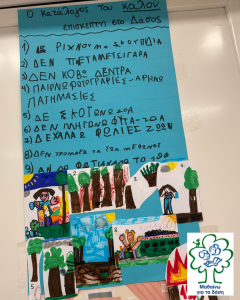 Ο Κατάλογος Του Καλού
επισκέπτη στο Δάσος
1) ΔΕ ΡΙΧΝΟυμε ΣΚΟυΠΙΔΙΑ
2) ΔΕΝ ΠΕΤΑΜΕ ΤΣΙΓΑΡΑ
3) ΔΕΝ ΚΟΒΩ ΔΕΝΤΡΑ
4) ΠΑΙΡΝΩ ΦΩΤΟΓΡΑΦΙΕΣ-ΑΦΗΝΩ
ΠΑΤΗΜΑΣΙΕΣ
5) ΔΕ ΣΚΟΤΩΝΩ ΖΩΑ
6) ΔΕΝ ΠΛΗΓΩΝΩ ΦΥΤΑ-ΖΩΑ
7) ΔΕ ΧΑΛΩ ΦΩΛΙΕΣ ΖΩΩΝ
8) ΔΕΝ ΤΡΟΜΑΖΩ ΤΑ ΖΩΑ ΜΕ
9) ΑΝ
2
4
5
Μαθαίνω
για τα δάση